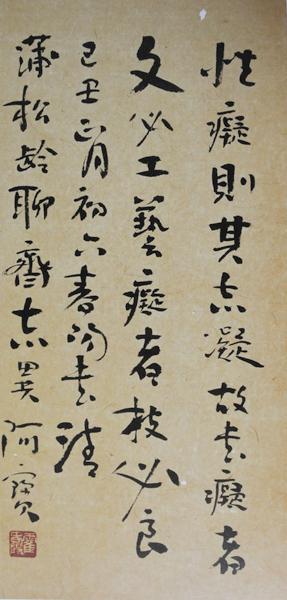 性癡則其志凝故書癡者
文必工藝癡者技必良
己丑正月初六春書清
蒲松齡聊齋志異阿寶